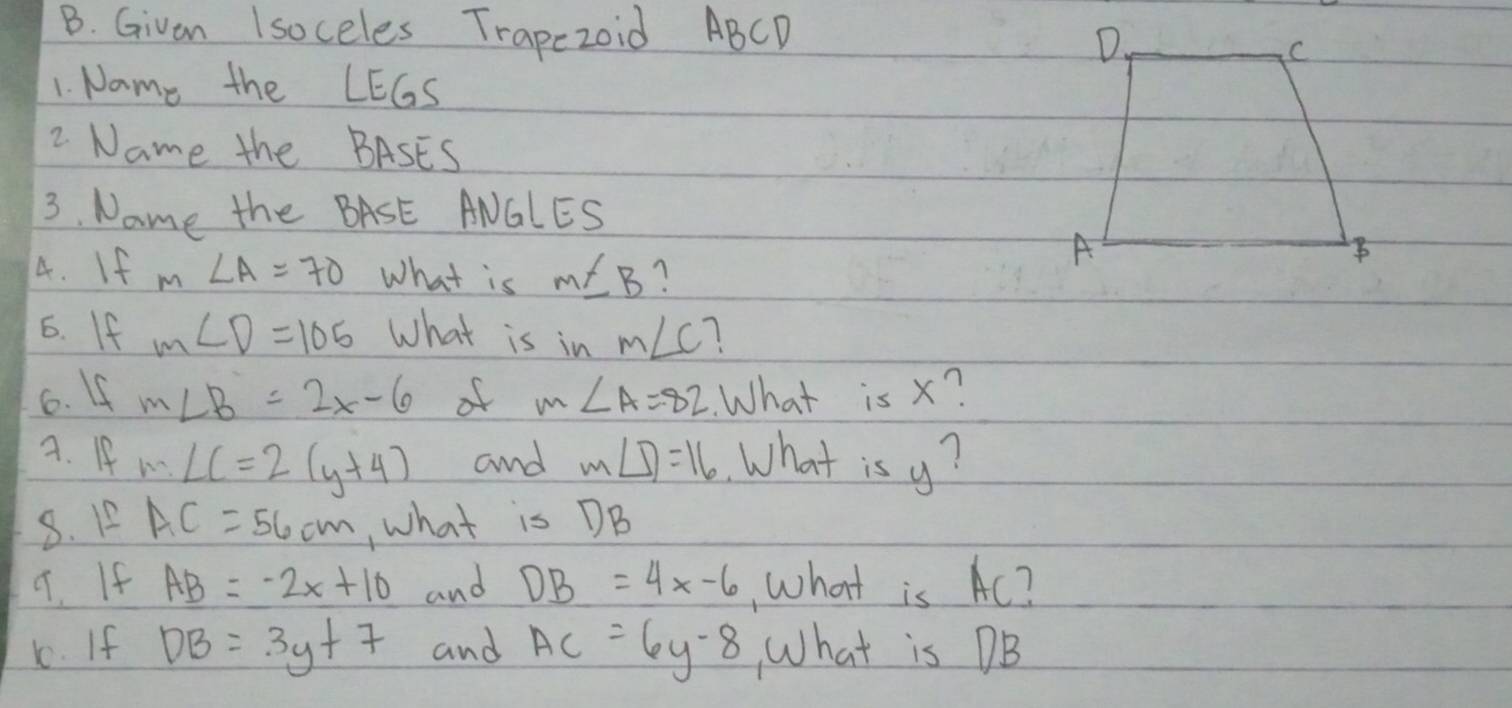 B. Given Isoceles Trapezoid ABCD
D C
1. Name the LEGS
2. Name the BASES
3. Name the BASE ANGLES
A B
4. If m ∠A = 70 what is m∠B?
5. If m∠D = 105 What is in m∠C?
6. If m∠B = 2x-6 of m∠A=82. What is x?
7. If m∠C = 2(y+4) and m∠D=16. What is y?
8. If AC = 56 cm, what is DB
9. If AB = -2x+10 and DB = 4x-6, What is AC?
10. If DB = 3y+7 and AC = 6y-8, What is DB